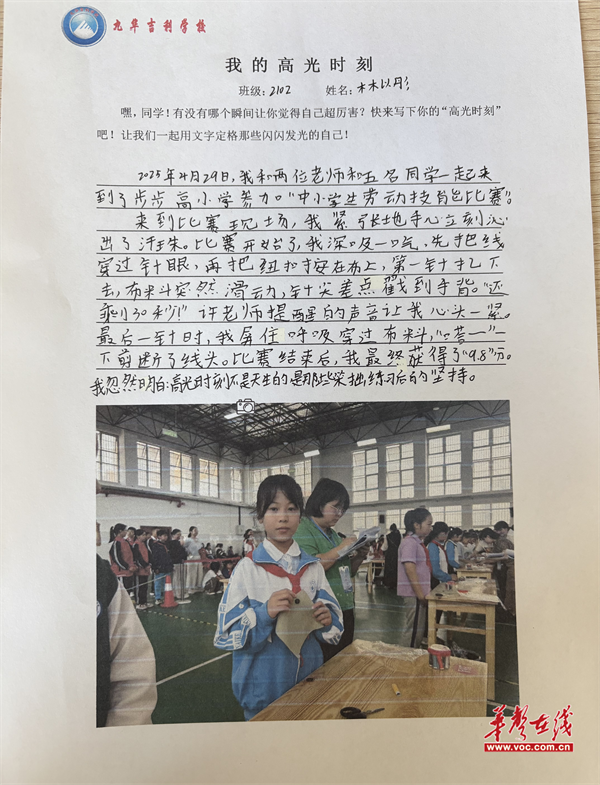 九华吉利学校
我的高光时刻
班级：2102 姓名：林以彤
嘿，同学！有没有哪个瞬间让你觉得自己超厉害？快来写下你的“高光时刻”
吧！让我们一起用文字定格那些闪闪发光的自己！
2025年4月29日，我和两位老师和五名同学一起来
到了步步高小学参加“中小学生劳动技能比赛”。
来到比赛现场，我紧张地手心立刻沁
出了汗珠。比赛开始了，我深吸一口气，先把线
穿过针眼，再把纽扣按在布上，第一针扎下
去，布料突然滑动，针尖差点戳到手背。“还
剩30秒！”许老师提醒的声音让我心头一紧。
最后一针时，我屏住呼吸穿过布料，“嗒”一
下剪断了线头。比赛结束后，我最终获得了“9.8”分。
我忽然明白：高光时刻不是天生的是那些笨拙练习后的坚持。
华声在线
www.voc.com.cn